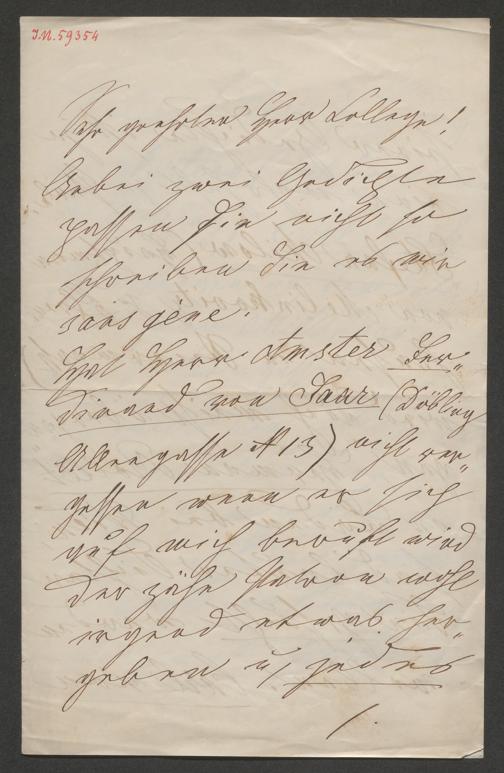 I.N. 59354
Sehr geehrter Herr College!
Anbei zwei Gedichte
passen Sie nicht so
schreiben Sie es mir
sans gêne.
Hat Herr Amster Fer„
dinand von Saar (Döbling
Alleegasse № 13) nicht ver„
gessen wenn er sich
auf mich beruft wird
der zähe Patron wohl
irgend etwas her„
geben u, jedes
/.